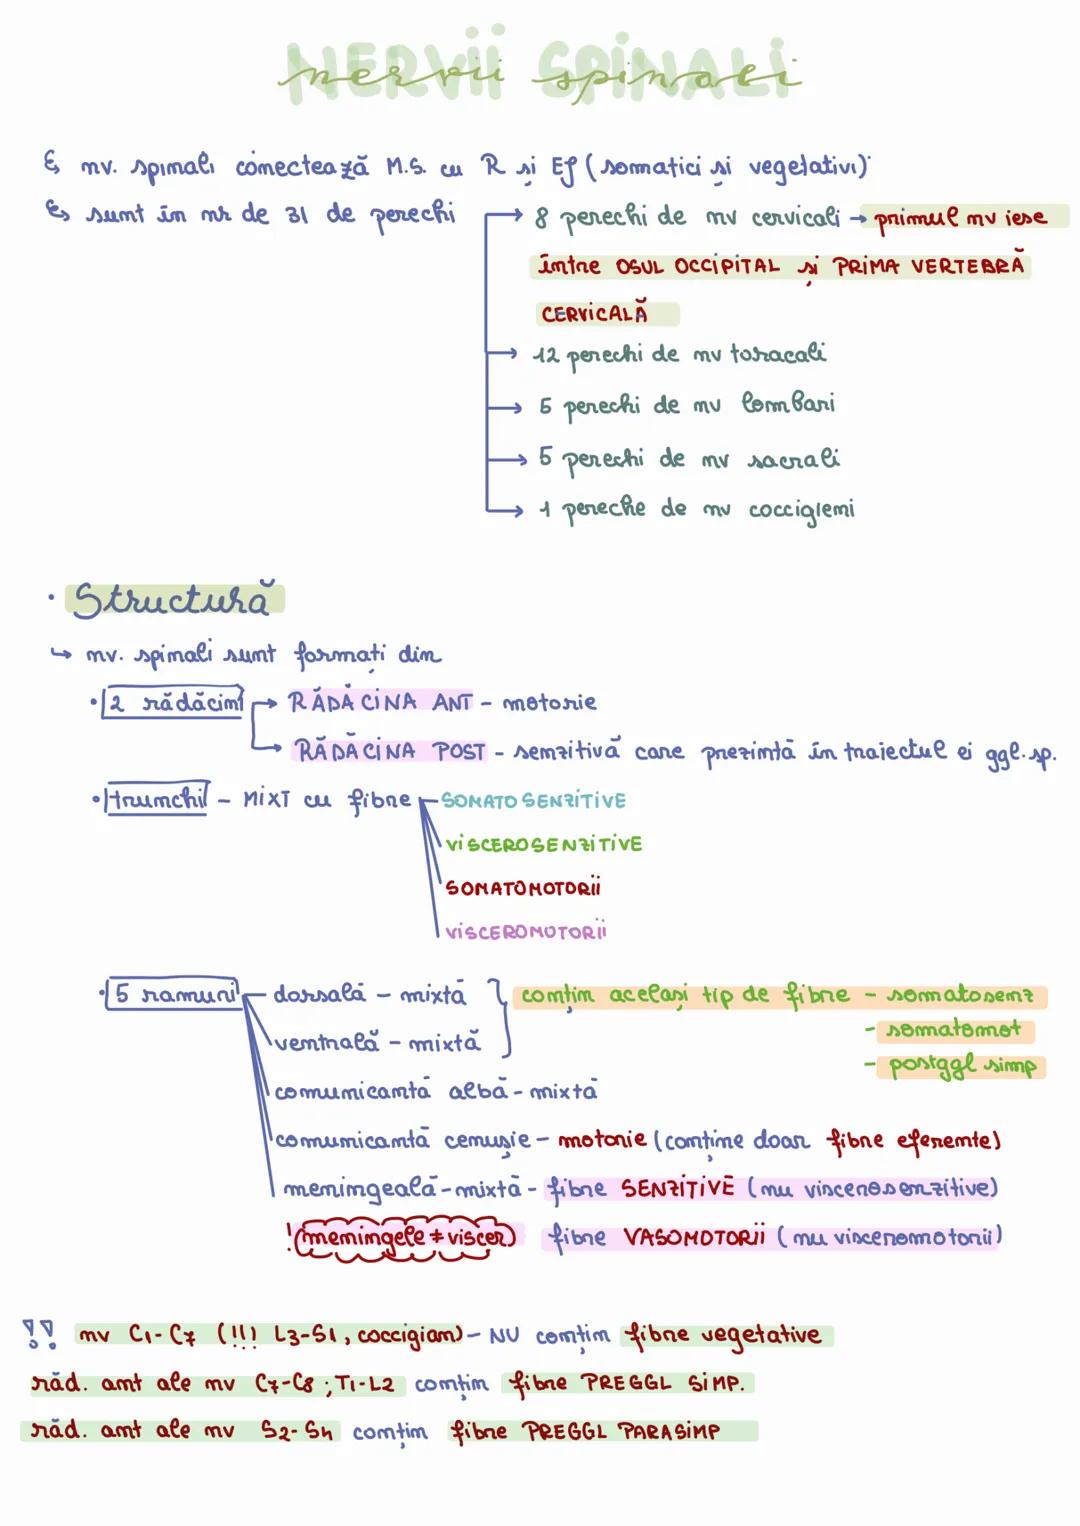 NERVII SPINALI
nervii spinali
nv. spinali conectează M.S. cu R și Ef (somatici și vegetativi)
sunt în nr de 31 de perechi
→ 8 perechi de nv cervicali → primul nv iese
între OSUL OCCIPITAL și PRIMA VERTEBRĂ
CERVICALĂ
→ 12 perechi de nv toracali
→ 5 perechi de nv lombari
→ 5 perechi de nv sacrali
→ 1 pereche de nv coccigieni
• Structură
↳ nv. spinali sunt formați din
• 2 rădăcini → RĂDĂCINA ANT - motorie
→ RĂDĂCINA POST - senzitivă care prezintă în traiectul ei ggl. sp.
• trunchi - MIXT cu fibre SOMATOSENZITIVE
VISCEROSENZITIVE
SOMATOMOTORII
VISCEROMOTORII
• 5 ramuri - dorsală - mixtă } conțin același tip de fibre - somatosenz
- somatomot
ventrală - mixtă
- postggl simp
comunicantă albă - mixtă
comunicantă cenușie - motorie (conține doar fibre eferente)
meningeală - mixtă - fibre SENZITIVE (nu viscerosenzitive)
! (meningele ≠ viscer) fibre VASOMOTORII (nu visceromotorii)
!! nv C1-C7 (!!! L3-S1, coccigian) - NU conțin fibre vegetative
răd. ant ale nv C7-C8 ; T1-L2 conțin fibre PREGGL SIMP.
răd. ant ale nv S2-S4 conțin fibre PREGGL PARASIMP